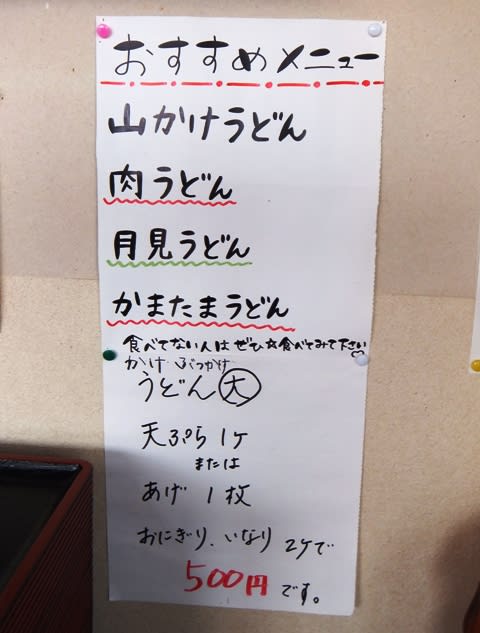 おすすめメニュー
山かけうどん
肉うどん
月見うどん
かまたまうどん
食べてない人は ぜひ☆食べてみて下さい♡
かけ ぶっかけ
うどん 大
天ぷら 1ヶ
または
あげ 1枚
おにぎり、いなり 2ケで
500円です。